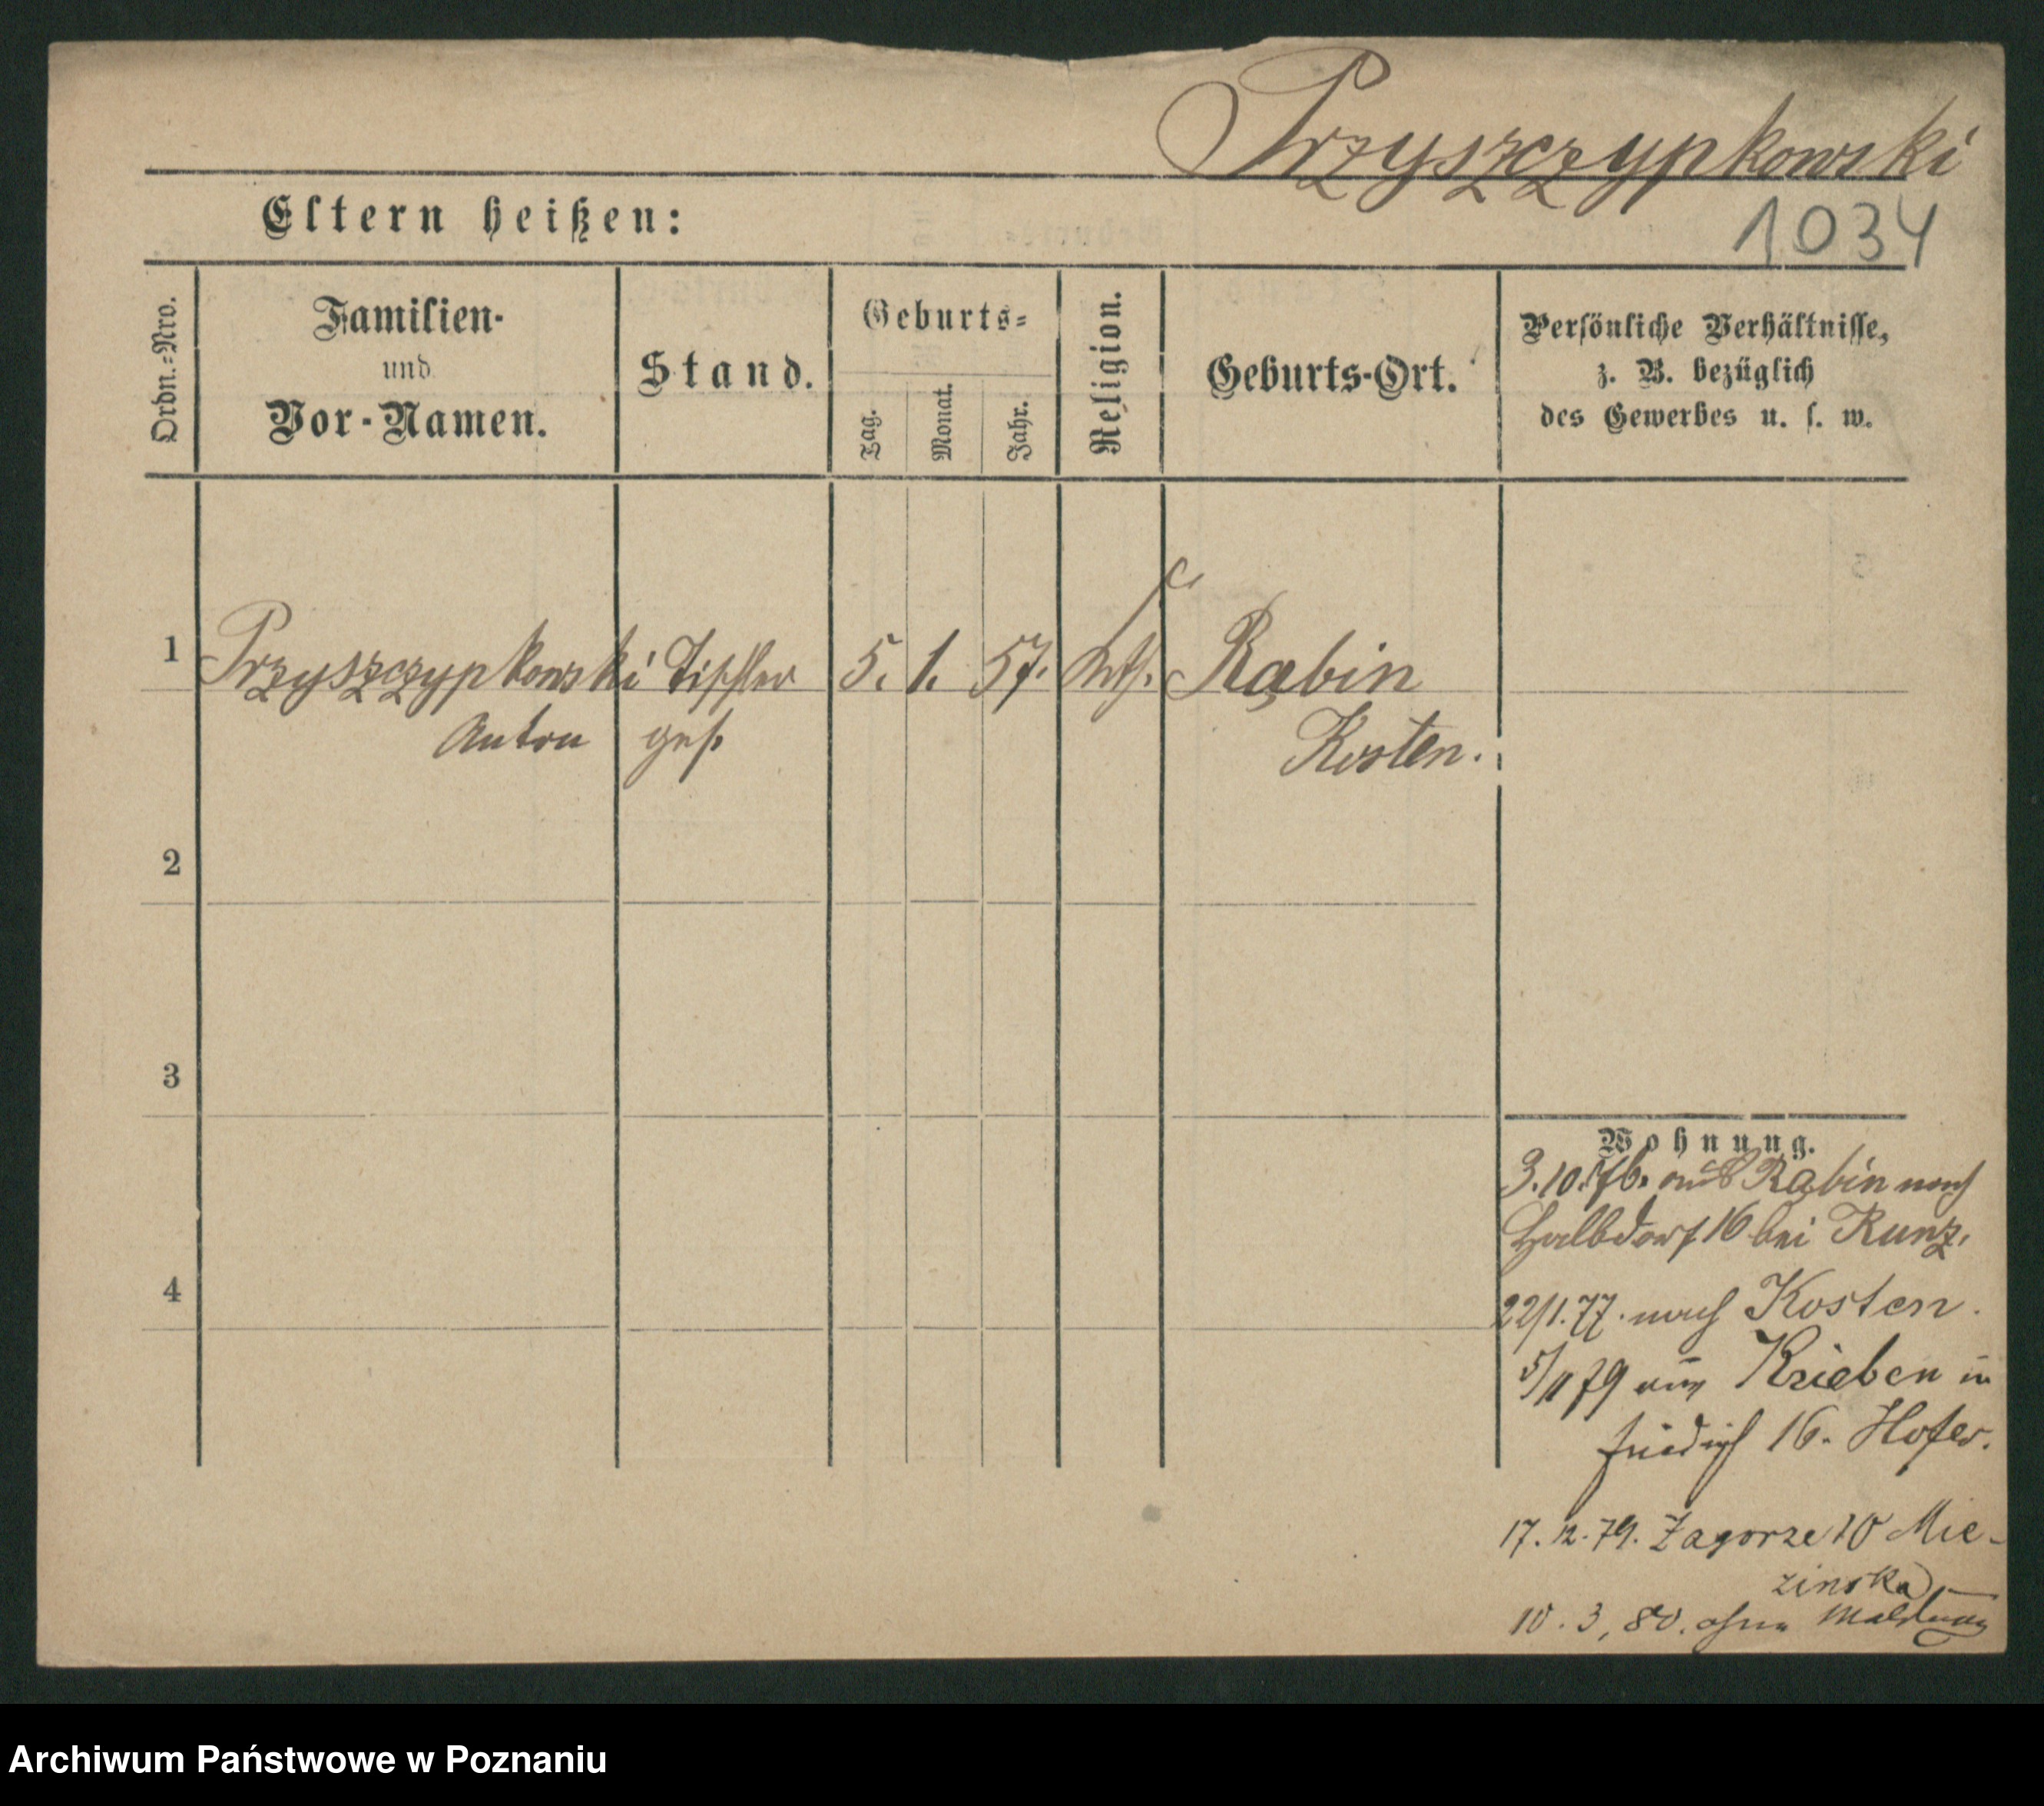 Przyszczypkowski
1034
Eltern heißen:
Ordn.=Nro.
Familien-
und
Vor-Namen.
Stand.
Geburts=
Tag.
Monat.
Jahr.
Religion.
Geburts-Ort.
Persönliche Verhältnisse,
z. B. bezüglich
des Gewerbes u. s. w.
1 Przyszczypkowski Tischler 5. 1. 57. kth. Rąbin
Anton ges. Kosten.
2
3
4
Wohnung.
3.10.76. aus Rąbin nach
Halbdorf 16 bei Kunz.
22/1.77. nach Kosten.
5/11 79 aus Krieben in
16. Hofer.
17. 12. 79. Zagorze 10 Mie-
zinska
10. 3, 80. ohne Meldung
Archiwum Państwowe w Poznaniu